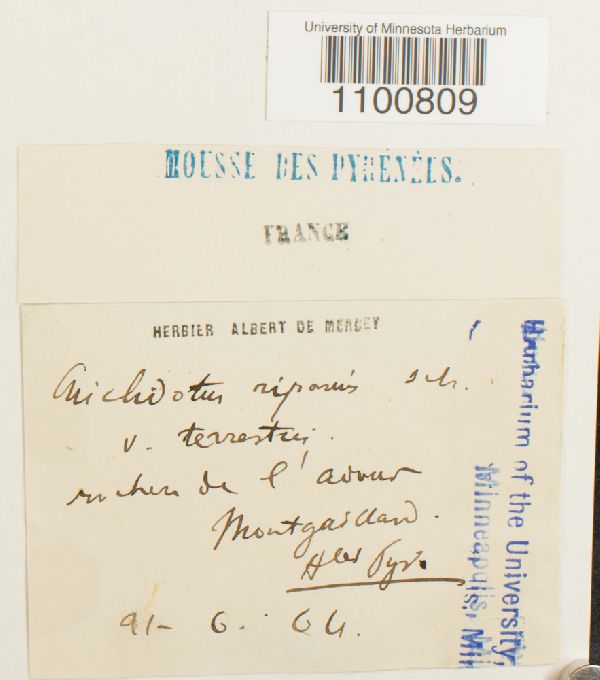 University of Minnesota Herbarium
1100809
MOUSSE DES PYRÉNÉES.
FRANCE
HERBIER ALBERT DE MERCEY
riparius sch.
v. terrestris.
de l'adour
Montgaillard.
Htes Pyr.
6.
Herbarium of the University,
Minneapolis, Min